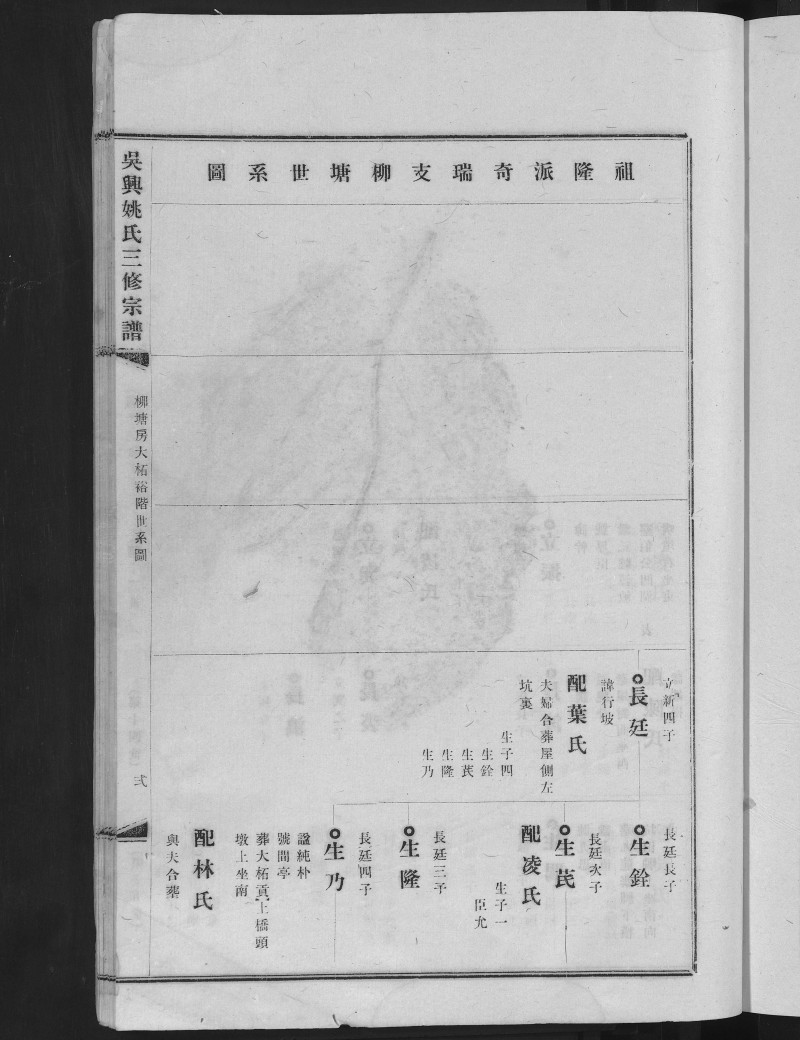 祖隆派奇瑞支柳塘世系圖
吳興姚氏三修宗譜
柳塘房大柘裕階世系圖
弍
立新四子
長廷
諱行坡
配葉氏
夫婦合葬屋側左
坑裏
生子四
生銓
生芪
生隆
生乃
長廷長子
生銓
長廷次子
生芪
配凌氏
生子一
臣允
長廷三子
生隆
長廷四子
生乃
諡純朴
號間亭
葬大柘貢上橋頭
墩上坐南
配林氏
與夫合葬